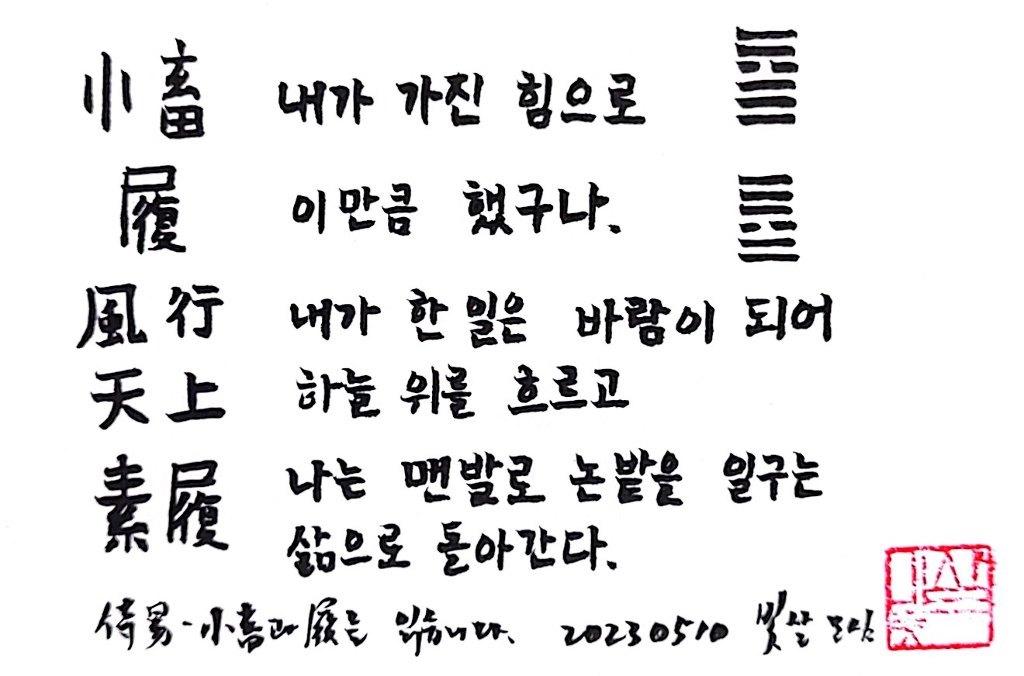 小畜 내가 가진 힘으로
履 이만큼 했구나.
風行 내가 한 일은 바람이 되어
天上 하늘 위를 흐르고
素履 나는 맨발로 논밭을 일구는
삶으로 돌아간다.
小畜과 履를 읽습니다. 20230510 빛살